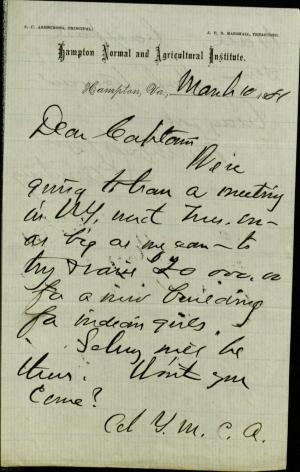 S. C. ARMSTRONG, PRINCIPAL.
J. F. B. MARSHALL, TREASURER.
Hampton Normal and Agricultural Institute.
Hampton, Va., March 10, 188
Dear Captain
We're
going to have a meeting
in N.Y. next Tues. on
as big as we can - to
try & raise $20 000.00
for a new building
for indian girls.
will be
there. Won't you
come?
at Y. M. C. A.